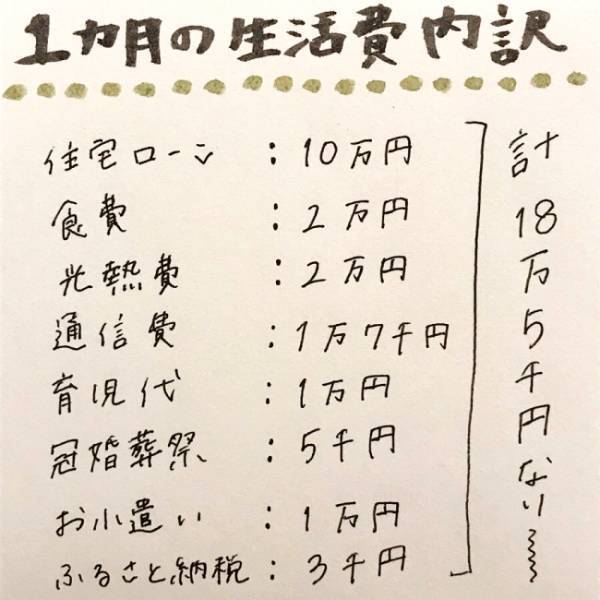 1カ月の生活費内訳
住宅ローン : 10万円
食費 : 2万円
光熱費 : 2万円
通信費 : 1万7千円
育児代 : 1万円
冠婚葬祭 : 5千円
お小遣い : 1万円
ふるさと納税 : 3千円
計18万5千円なり〜〜